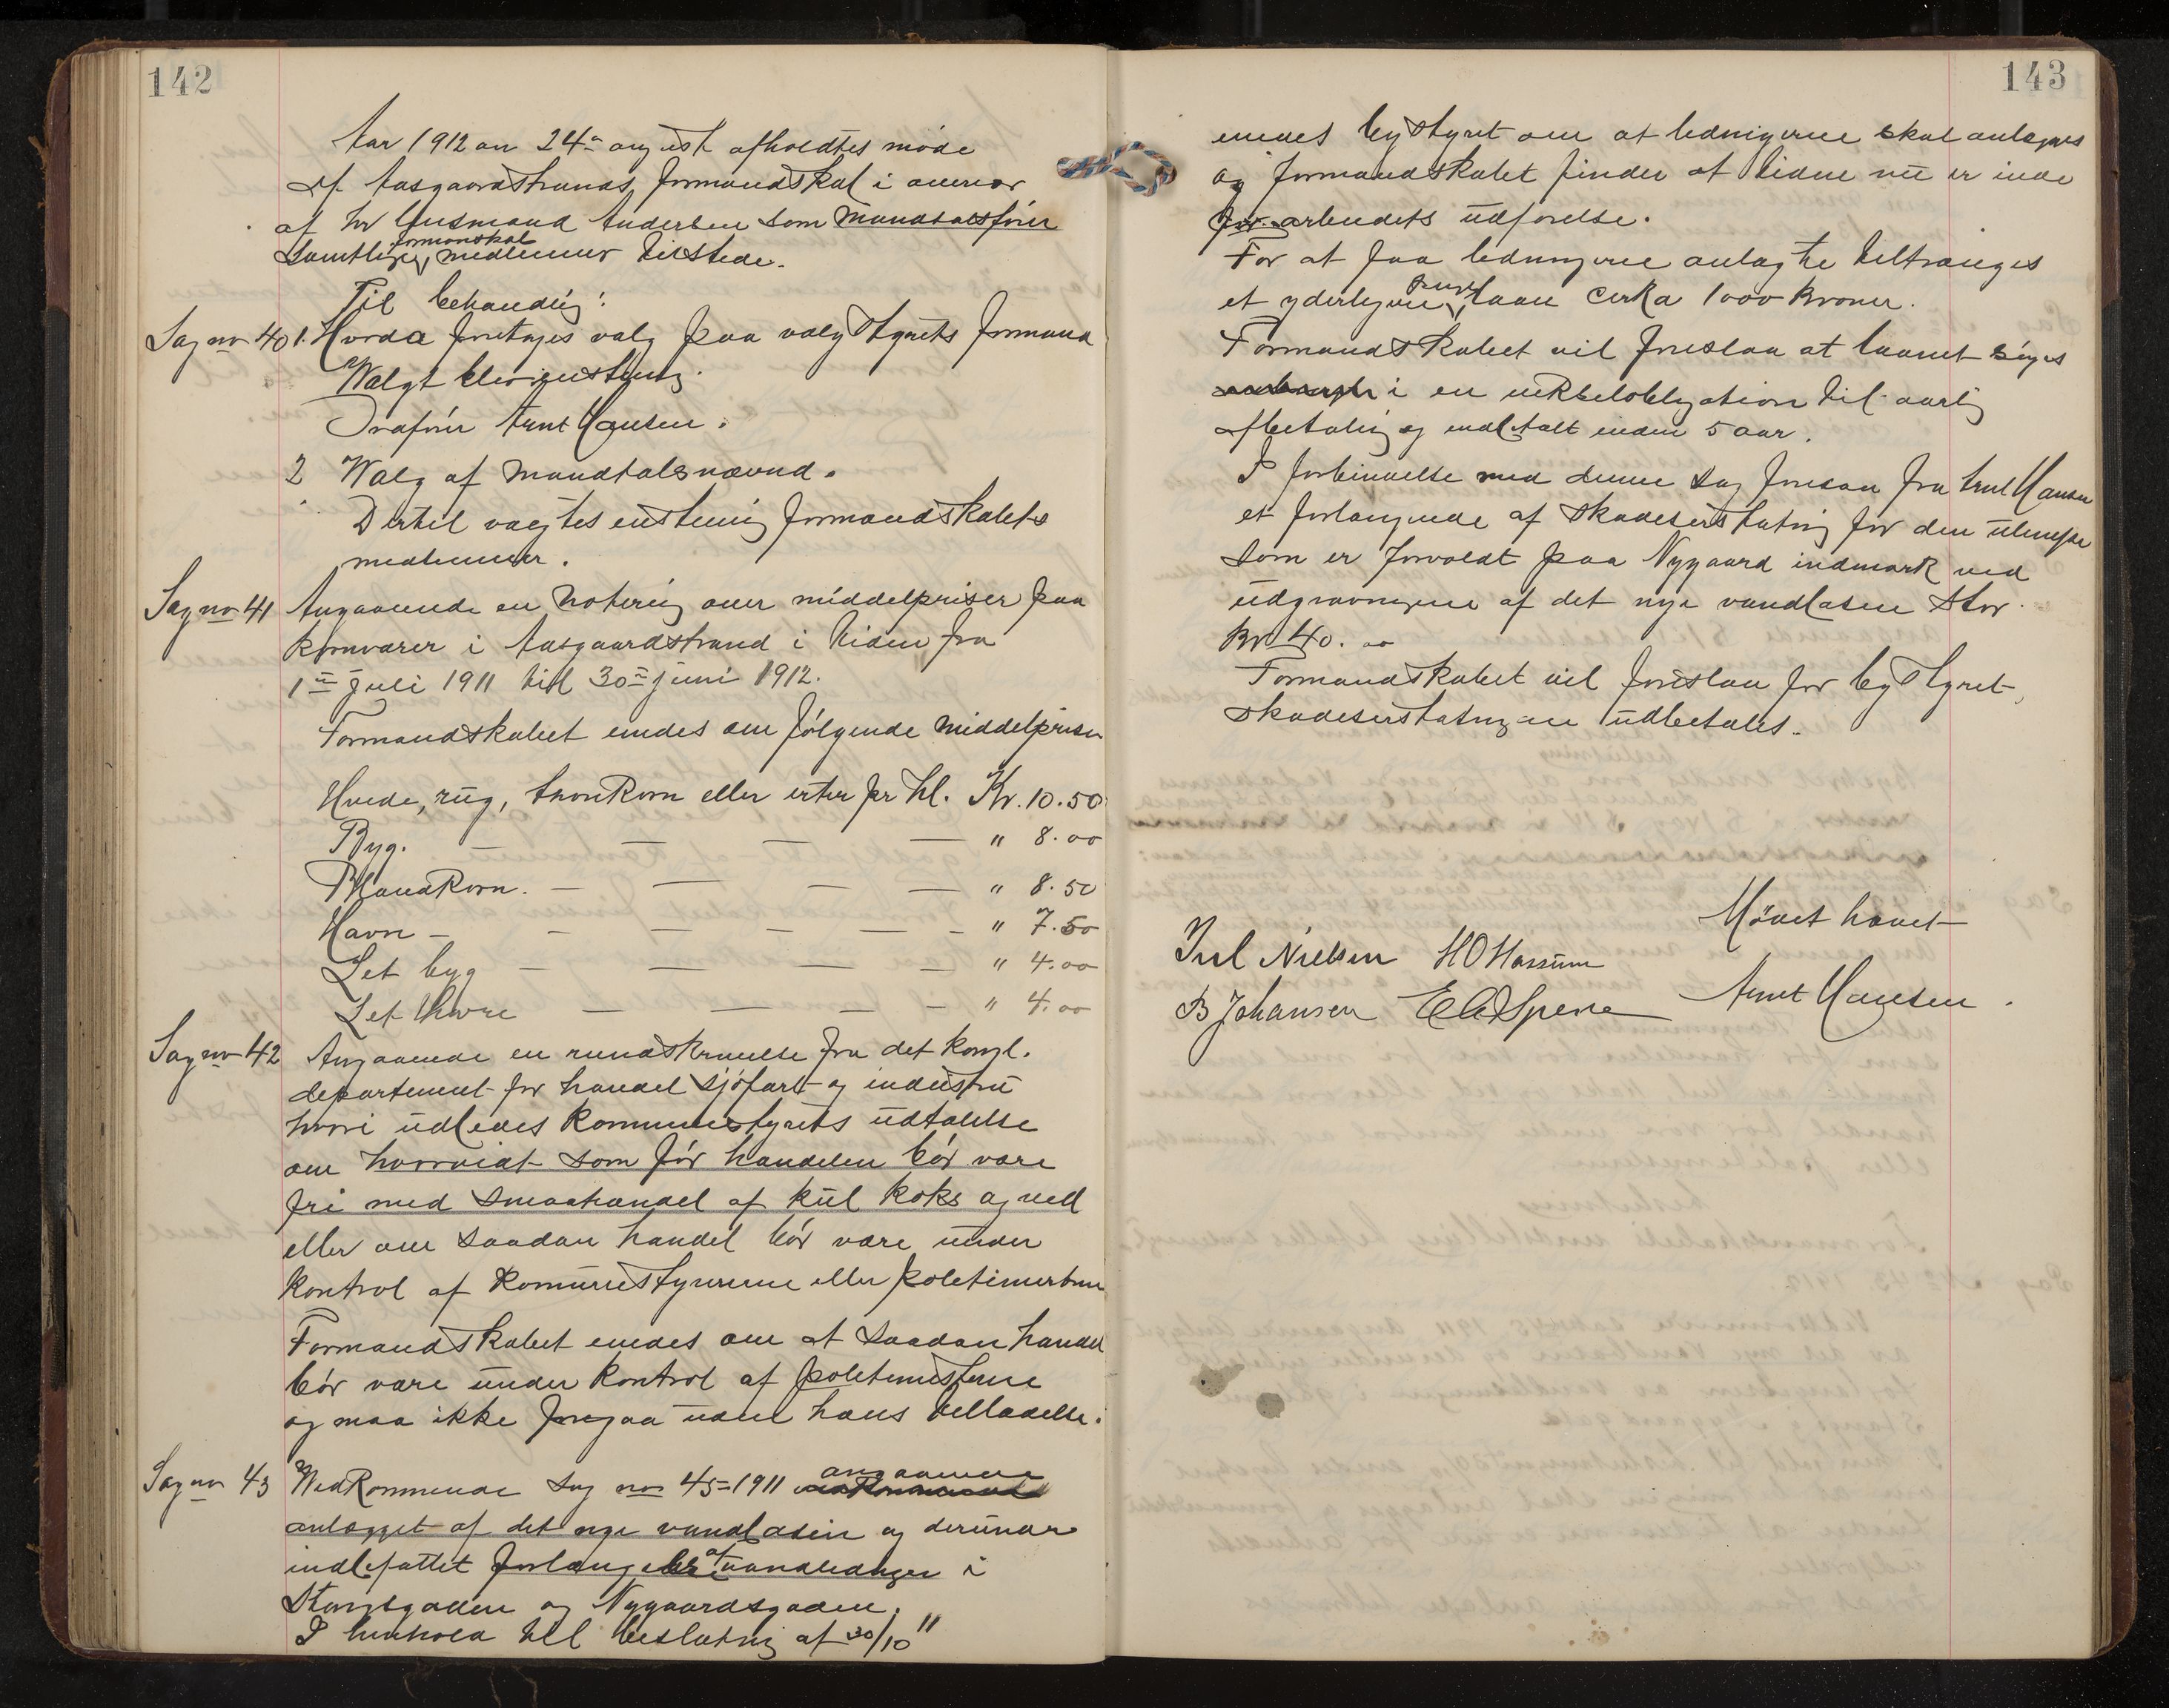 142
Aar 1912 den 24de august afholdtes møde
af Aasgaardstrands formandskab i nærvær
af hr Gusmand Andersen som mandtalsfører
formanskab
Samtlige medlemmer tilstede.
Til behandling:
Sag no 40 1. Hvorda foretages valg paa valgstyrets formand
Walgt blev enstemig.
Ordfører Arnt Hansen.
2 Walg af mandtalsnævnd.
Dertil valgtes enstemig formandskabets
medlemmer.
Sag no 41 Angaaende en notering over middelpriser paa
kornvarer i Aasgaardstrand i tiden fra
1ste juli 1911 til 30te juni 1912.
Formandskabet enedes om følgende middelpriser
Hvede, rug, havrekorn eller erter pr hl. Kr. 10.50
Byg. — — — — " 8.00
Blandkorn. — — — — " 8.50
Havre — — — — — — " 7.50
Let byg — — — — " 4.00
Let havre — — — — " 4.00
Sag no 42 Angaaende en rundskrivelse fra det kongl.
departement for handel sjøfart og industri
hvori udbedes kommunestyrets udtalelse
om hvorvidt som før handelen bør være
fri med smaahandel af kul koks og ved
eller om saadan handel bør være under
kontrol af komunestyrerne eller poletimesteren
Formandskabet enedes om at saadan handel
bør være under kontrol af poletimesteren
og maa ikke foregaa uden hans tilladelse.
Sag no 43 Vedkommende sag no 45-1911 angaaende
anlægget af det nye vandbasin og derunder
indbefattet forlængelse af vandledninger i
Stangsgaden og Nygaardsgaden.
I henhold til beslutning af 30/10 11
143
enedes bystyret om at ledningerne skal anlægges
og formandskabet finder at tiden nu er inde
for arbeidets udførelse.
For at faa ledningerne anlagte tiltrænges
et yderligere laan cirka 1000 kroner.
Formandskabet vil foreslaa at laanet søges
i en vekselobligation til aarlig
afbetaling og indbetalt inden 5 aar.
I forbindelse med denne sag forelaa fra Arnt Hansen
et forlangende af skadeserstatning for den ulempe
som er forvoldt paa Nygaard indmark ved
udgravningen af det nye vandbasin stor
Kr 40.00
Formandskabet vil foreslaa for bystyret
skadeserstatningen udbetales.
Mødet hævet
Jul Nielsen H O Hansen
B Johansen Arnt Hansen.